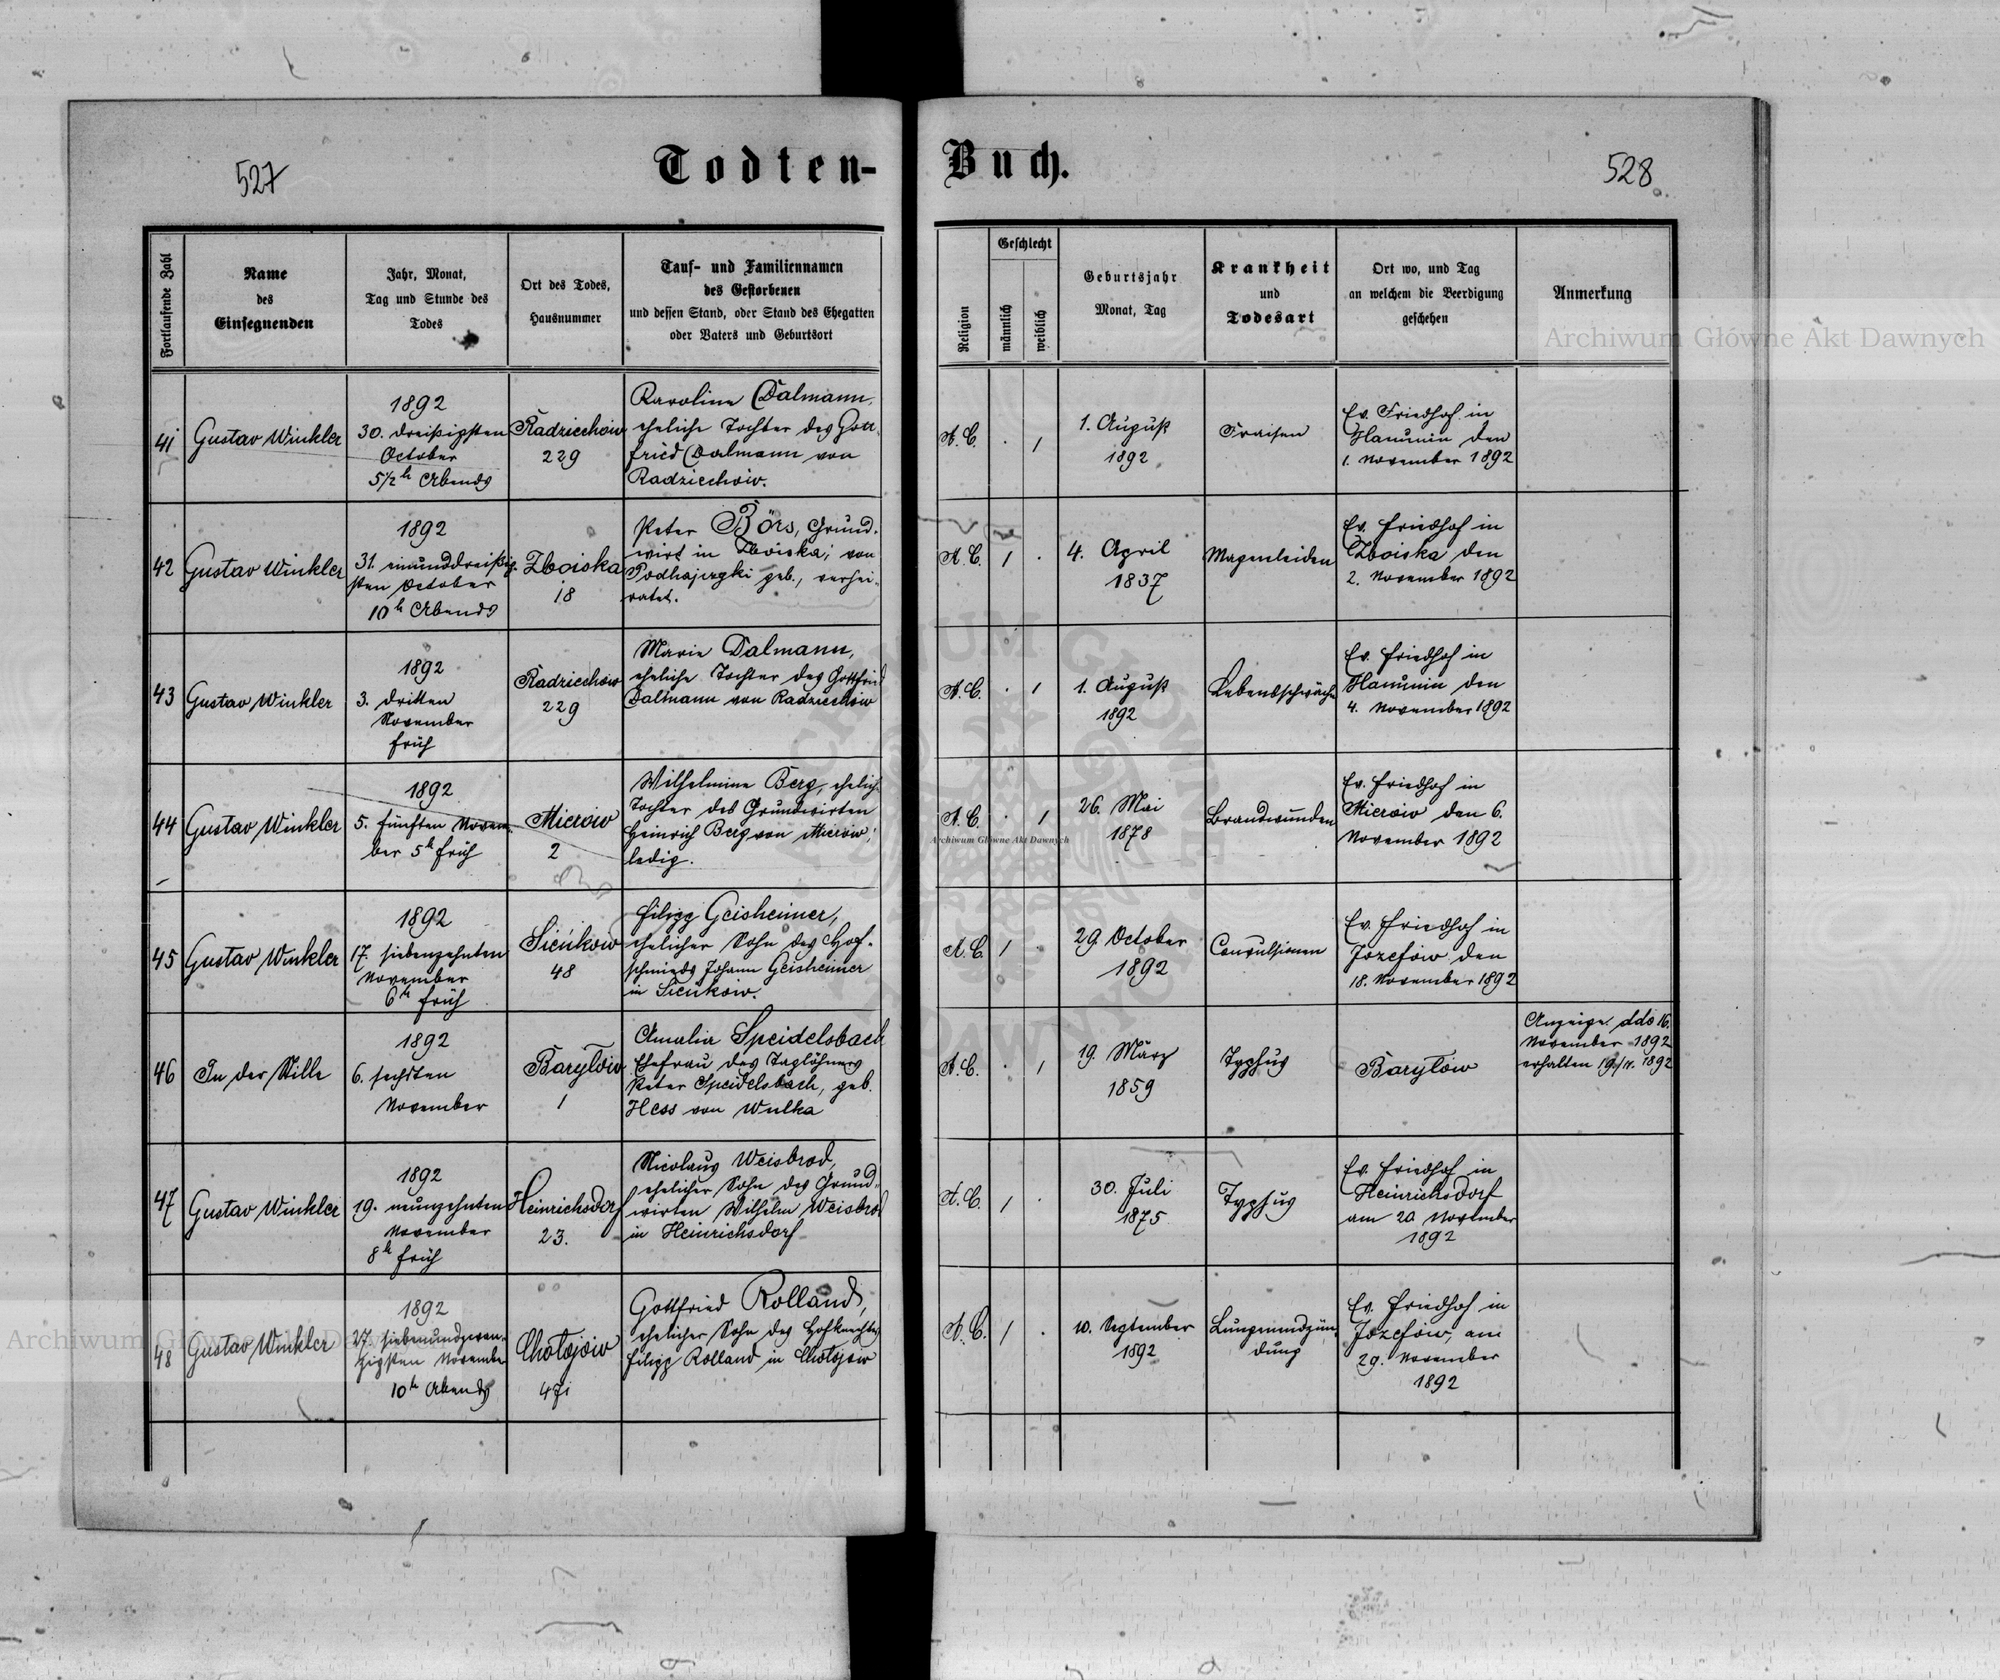 527
Todten-
Buch.
528
Fortlaufende Zahl
Name
des
Einsegnenden
Jahr, Monat,
Tag und Stunde des
Todes
Ort des Todes,
Hausnummer
Tauf- und Familiennamen
des Gestorbenen
und dessen Stand, oder Stand des Ehegatten
oder Vaters und Geburtsort
Religion
Geschlecht
männlich
weiblich
Geburtsjahr
Monat, Tag
Krankheit
und
Todesart
Ort wo, und Tag
an welchem die Beerdigung
geschehen
Anmerkung
Archiwum Główne Akt Dawnych
41
Gustav Winkler
1892
30. dreißigsten
October
5 1/2 h Abends
Radziechów
229
Karoline Dalmann,
eheliche Tochter des Gott-
fried Dalmann von
Radziechów.
A. C.
1
1. August
1892
Fraisen
Ev. Friedhof in
Hanunin den
1. November 1892
42
Gustav Winkler
1892
31. einunddreißig-
sten October
10 h Abends
Zboiska
18
Peter Börs, Grund-
wirt in Zboiska, von
geb., verhei-
ratet.
A. C.
1
4. April
1837
Magenleiden
Ev. Friedhof in
Zboiska den
2. November 1892
43
Gustav Winkler
1892
3. dritten
November
früh
Radziechów
229
Marie Dalmann,
eheliche Tochter des Gottfried
Dalmann von Radziechów
A. C.
1
1. August
1892
Lebensschwäche
Ev. Friedhof in
Hanunin den
4. November 1892
44
Gustav Winkler
1892
5. fünften Novem-
ber 5 h früh
Mierów
2
Wilhelmine Berg, eheliche
Tochter des Grundwirten
Heinrich Berg von Mierów;
ledig.
A. C.
1
26. Mai
1878
Brandwunden
Ev. Friedhof in
Mierów den 6.
November 1892
Archiwum Główne Akt Dawnych
45
Gustav Winkler
1892
17. siebenzehnten
November
6 h früh
Sieńków
48
Filipp Geisheimer,
ehelicher Sohn des Hof-
schmieds Johann Geisheimer
in Sieńków.
A. C.
1
29. October
1892
Convulsionen
Ev. Friedhof in
Józefów den
18. November 1892
46
In der Stille
1892
6. sechsten
November
Baryłów
1
Amalia Speidelsbach
Ehefrau des Taglöhners
Peter Speidelsbach, geb.
Hess von Wulka
A. C.
1
19. März
1859
Typhus
Baryłów
Anzeige ddo 16.
November 1892
erhalten 19/11. 1892
47
Gustav Winkler
1892
19. neunzehnten
November
8 h früh
Heinrichsdorf
23.
Nicolaus Weisbrod,
ehelicher Sohn des Grund-
wirten Wilhelm Weisbrod
in Heinrichsdorf
A. C.
1
30. Juli
1875
Typhus
Ev. Friedhof in
Heinrichsdorf
am 20 November
1892
48
Gustav Winkler
1892
27. siebenundzwan-
zigsten November
10 h Abends
Chołojów
471
Gottfried Rolland,
ehelicher Sohn des Hofknechtes
Filipp Rolland in Chołojów
A. C.
1
10. September
1892
Lungenentzün-
dung
Ev. Friedhof in
Józefów, am
29. November
1892
Archiwum Główne Akt Dawnych